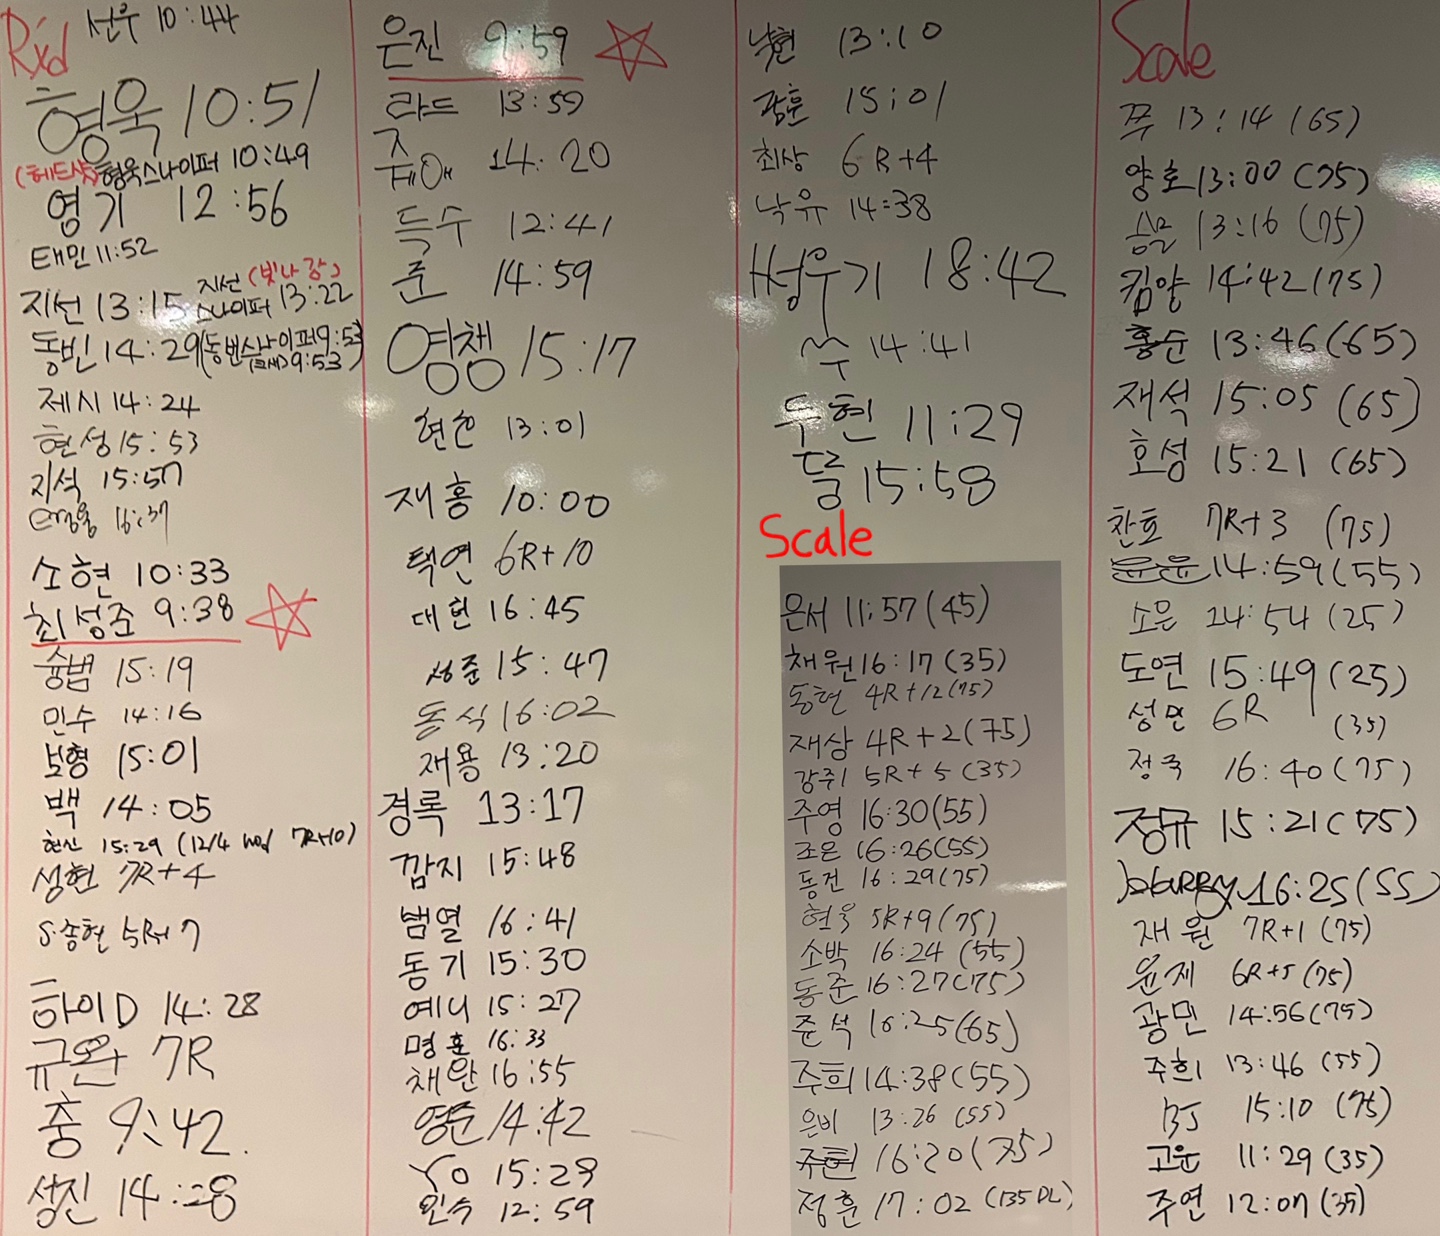 Rx'd
선우 10:44
형욱 10:51
(헤드샷) 형욱스나이퍼 10:49
영기 12:56
태민 11:52
지선 13:15 지선 (빛나 광)
스나이퍼 13:22
동빈 14:29 (동빈스나이퍼 9:53
9:53)
제시 14:24
현성 15:53
지석 15:57
16:37
소현 10:33
최성준 9:38
승범 15:19
민수 14:16
보형 15:01
백 14:05
현산 15:29 (12/4 wod 7R+10)
성현 7R+4
S.송현 5R+7
하이D 14:28
규완 7R
중 9:42
성진 14:28
은진 9:59
라드 13:59
쥬 14:20
득수 12:41
준 14:59
영챙 15:17
현준 13:01
재홍 10:00
턱연 6R+10
대현 16:45
성준 15:47
동식 16:02
재용 13:20
경록 13:17
깜지 15:48
범열 16:41
동기 15:30
예니 15:27
명훈 16:33
채완 16:55
영준 14:42
YO 15:28
민수 12:59
낙현 13:10
광훈 15:01
최상 6R+4
낙유 14:38
H성우기 18:42
14:41
두현 11:29
둘 15:58
Scale
은서 11:57 (45)
채원 16:17 (35)
동현 4R+12 (75)
재상 4R+2 (75)
강쥐 5R+5 (35)
주영 16:30 (55)
조은 16:26 (55)
동건 16:29 (75)
현욱 5R+9 (75)
소박 16:24 (55)
동준 16:27 (75)
준석 16:25 (65)
주희 14:38 (55)
은비 13:26 (55)
주현 16:20 (75)
정훈 17:02 (135 DL)
Scale
쭈 13:14 (65)
양호 13:00 (75)
승물 13:16 (75)
킴양 14:42 (75)
홍순 13:46 (65)
재석 15:05 (65)
호성 15:21 (65)
찬호 7R+3 (75)
윤윤 14:59 (55)
소은 24:54 (25)
도연 15:49 (25)
성민 6R (35)
정국 16:40 (75)
정규 15:21 (75)
16:25 (55)
재원 7R+1 (75)
윤제 6R+5 (75)
광민 14:56 (75)
주희 13:46 (55)
BJ 15:10 (75)
고운 11:29 (35)
주연 12:07 (35)